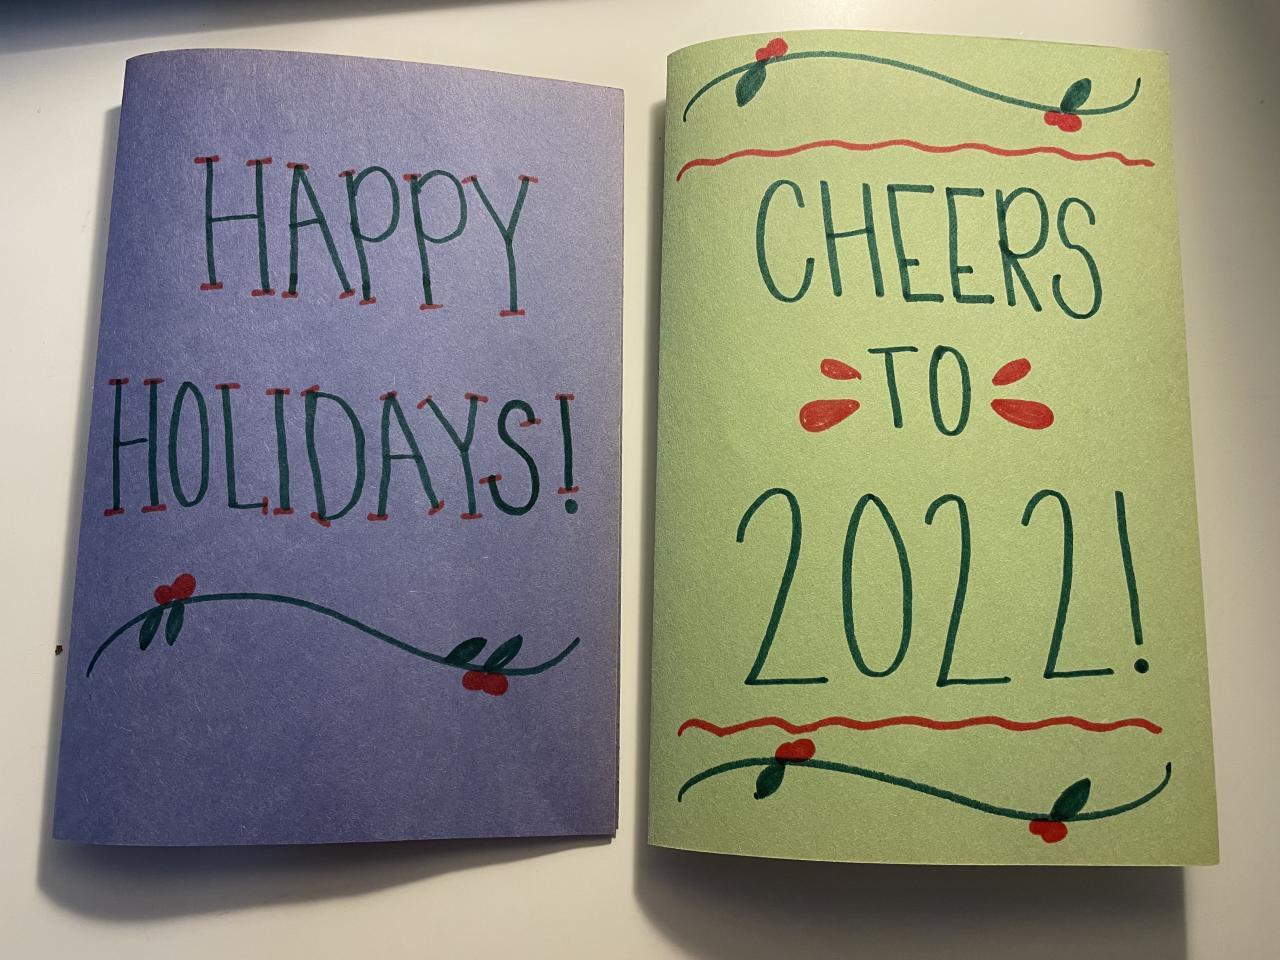 HAPPY
HOLIDAYS!
CHEERS
TO
2022!